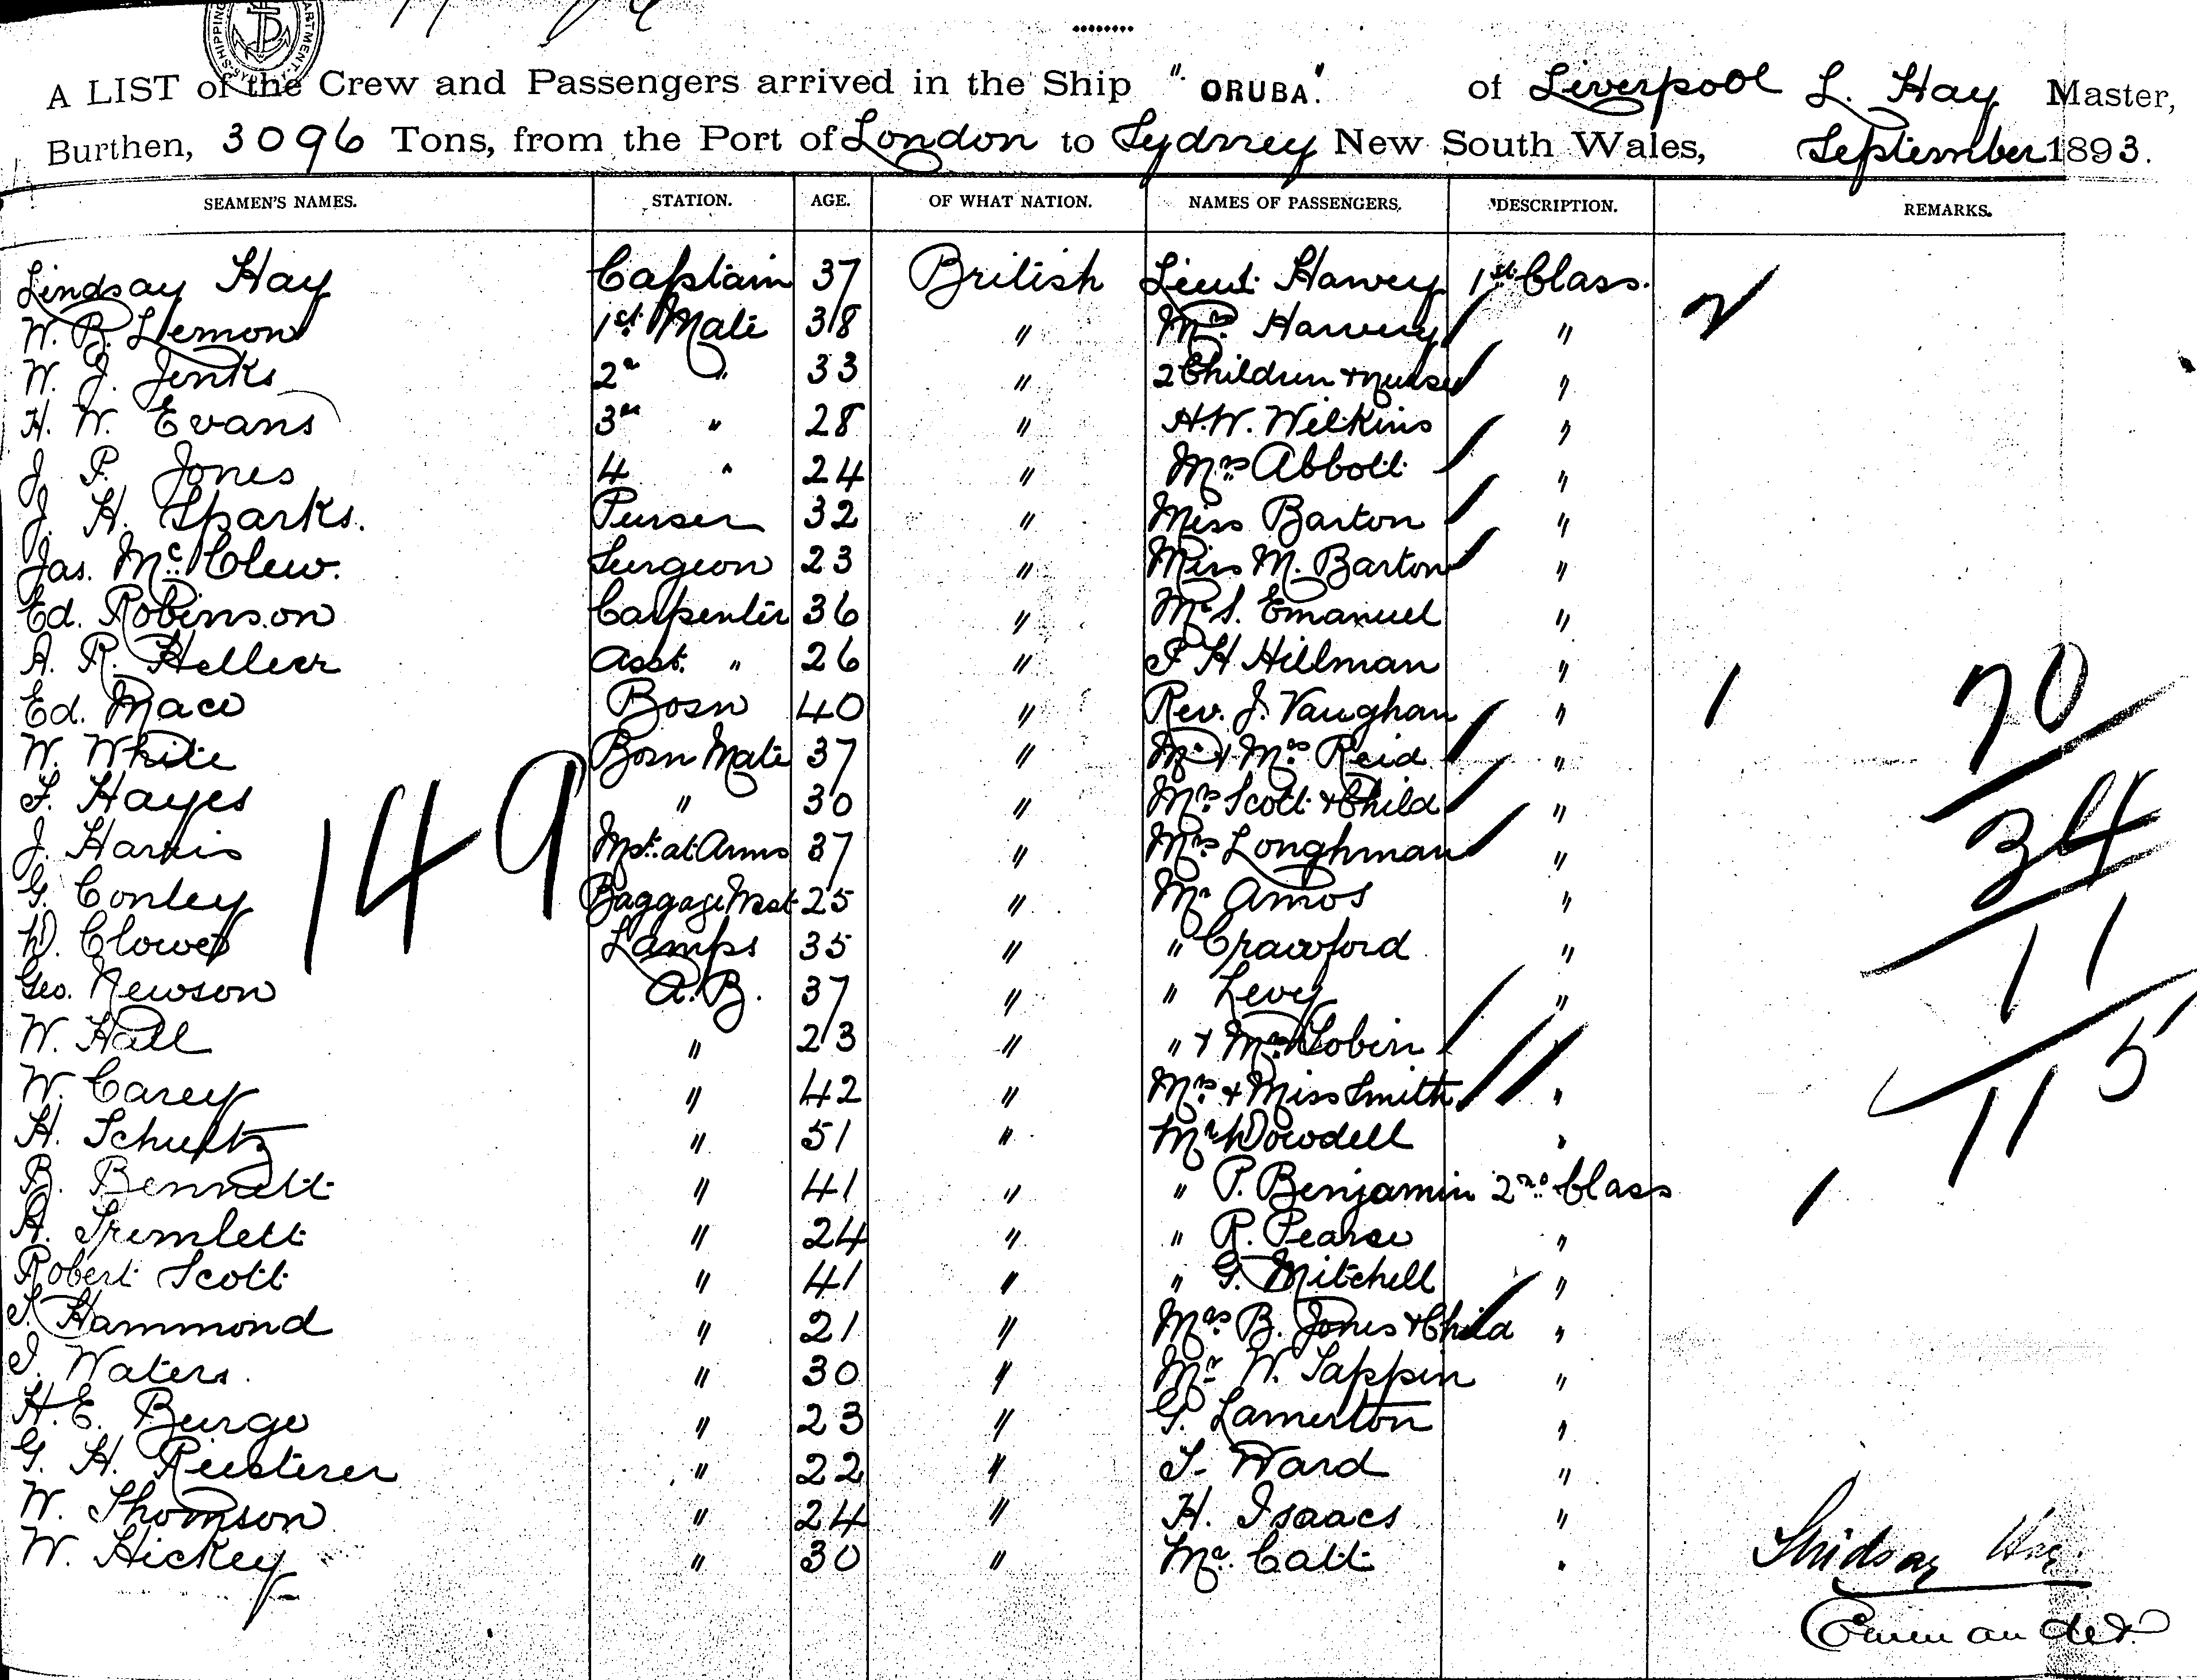 A LIST of the Crew and Passengers arrived in the Ship "ORUBA." of Liverpool L. Hay Master,
Burthen, 3096 Tons, from the Port of London to Sydney New South Wales, September 1893.
SEAMEN'S NAMES. STATION. AGE. OF WHAT NATION. NAMES OF PASSENGERS. DESCRIPTION. REMARKS.
Lindsay Hay Captain 37 British Lieut. Harvey 1st Class. 2
W. B. Lemon 1st Mate 38 " Mrs Harvey "
W. J. Jenks 2nd " 33 " 2 Children + nurse "
H. W. Evans 3rd " 28 " H.W. Wilkins "
J. P. Jones 4 " 24 " Mrs Abbott "
J. H. Sparks. Purser 32 " Miss Barton "
Jas. McClew. Surgeon 23 " Miss M. Barton "
Ed. Robinson Carpenter 36 " Mr S. Emanuel "
A. R. Hellier Asst. " 26 " P H Hillman "
Ed. Mace Bosn 40 " Rev. J. Vaughan " 1 70
W. White Bosn Mate 37 " Mr + Mrs Reid "
F. Hayes " 30 " Mrs Scott + Child " 34
J. Harris Mst. at Arms 37 " Mrs Longhman "
149
G. Conley Baggage Mast 25 " Mr Amos "
W. Clowes Lamps 35 " " Crawford " 11
Geo. Newson A.B. 37 " " Levy "
W. Hall " 23 " " + Mrs Tobin
W. Carey " 42 " Mrs + Miss Smith " 115
H. Schultz " 51 " Mr Dowdell "
B. Bennett " 41 " " P. Benjamin 2nd Class 1
A. Tremlett " 24 " " R. Pearse "
Robert Scott " 41 " " G. Mitchell "
S. Hammond " 21 " Mrs B. Jones + Child "
J. Waters. " 30 " Mr W. Tappin "
H. E. Burge " 23 " G. Lamerton "
G. H. Reesterer " 22 " T. Ward "
W. Thomson " 24 " H. Isaacs "
W. Hickey " 30 " Mr Catt "
Lindsay Hay
Commander